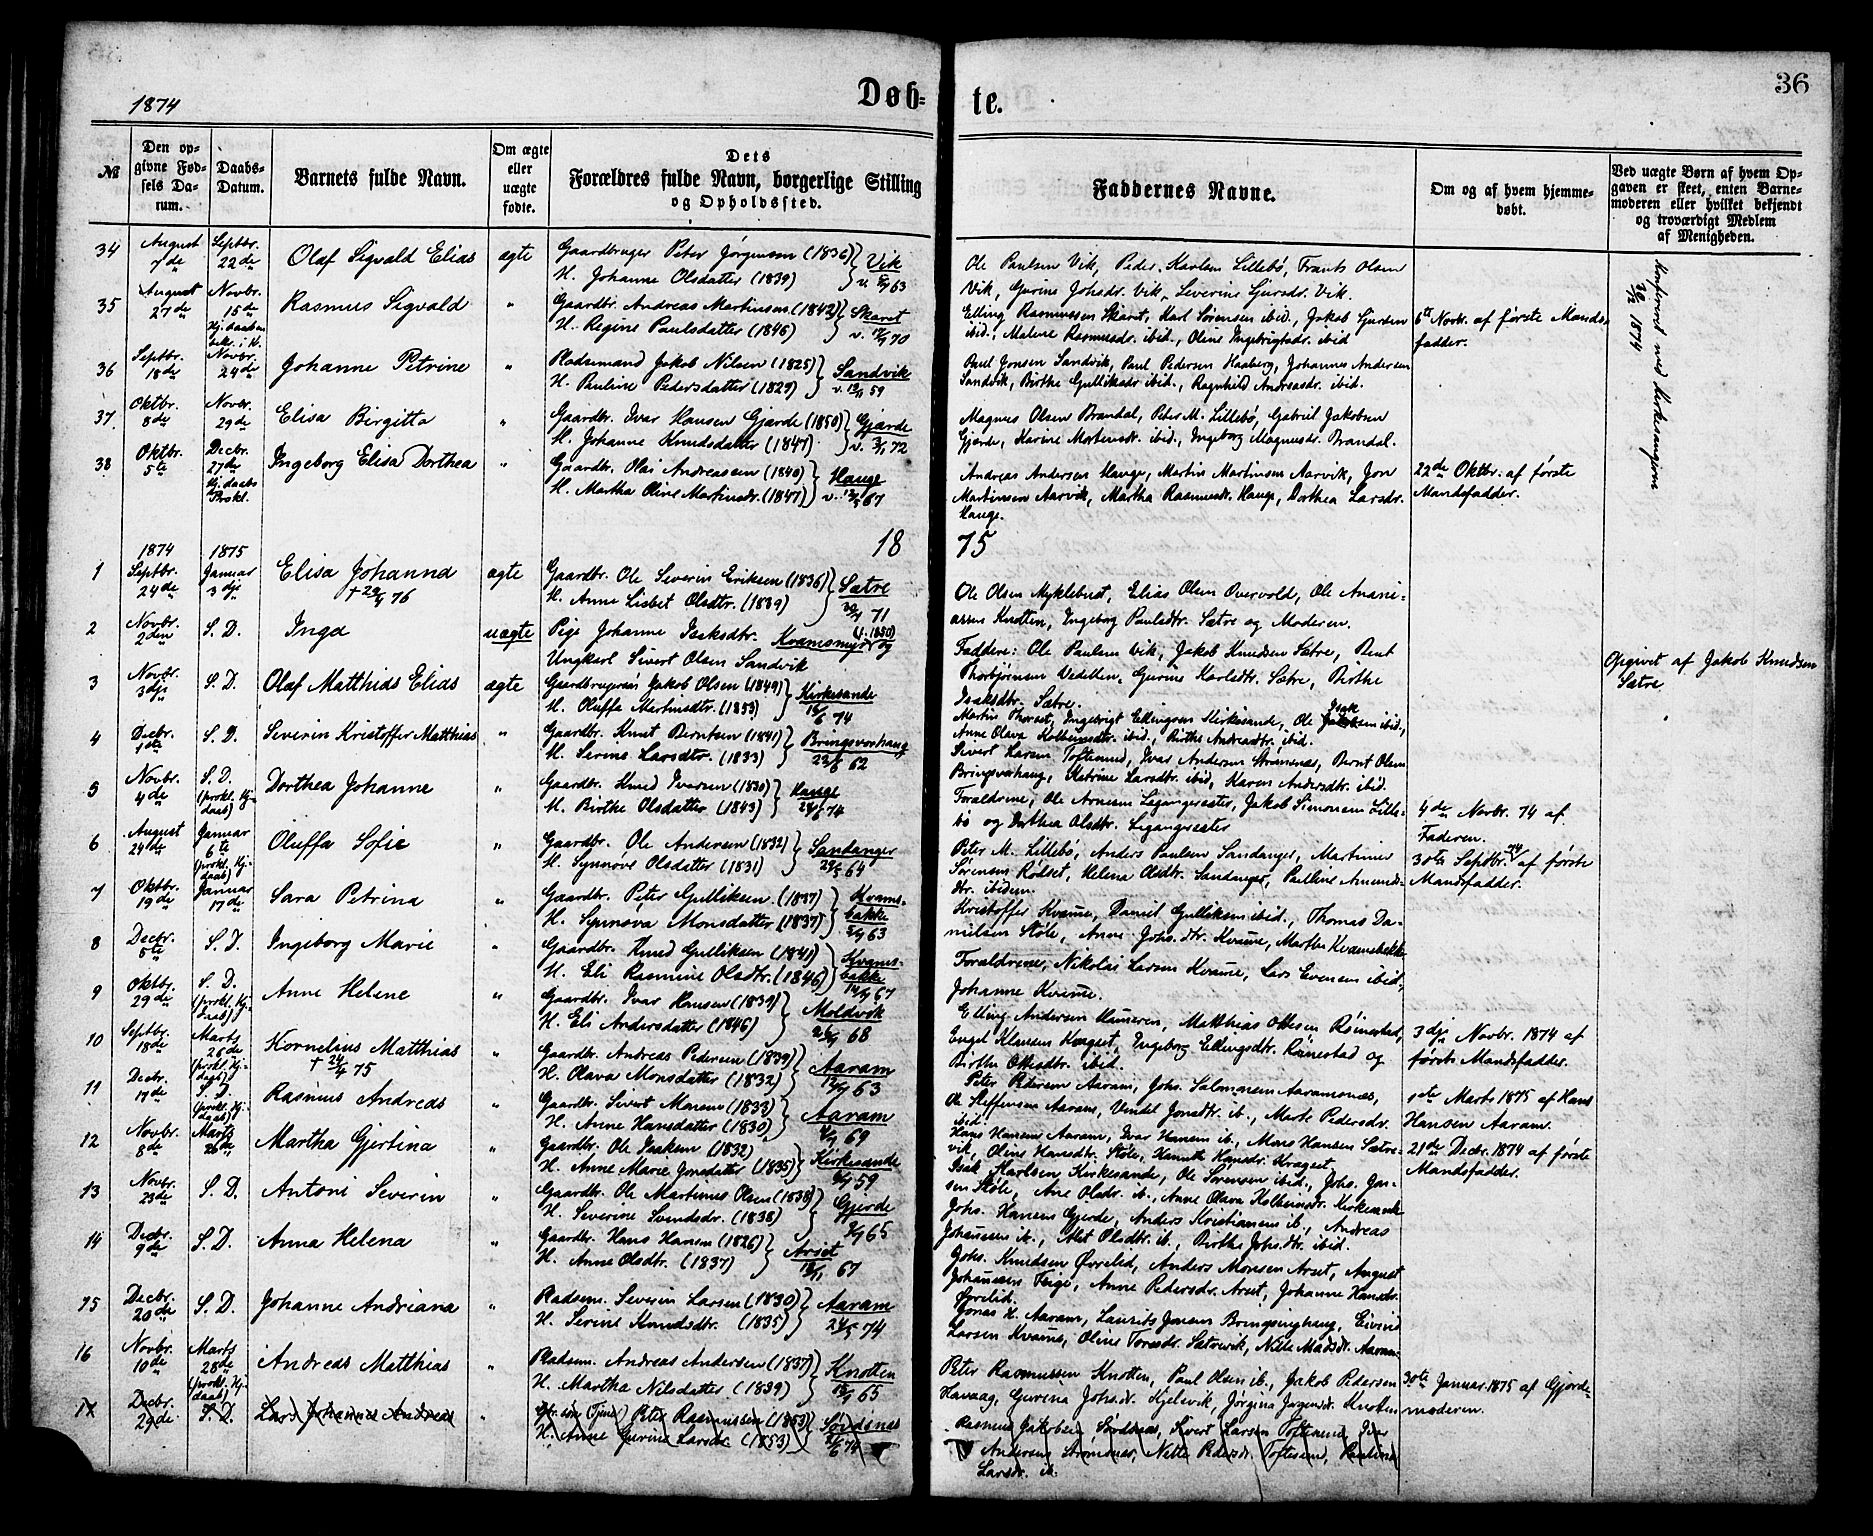 1874
Døb-
te.
36
№
Den op-
givne Fød-
sels Da-
tum.
Daabs-
Datum.
Barnets fulde Navn.
Om ægte
eller
uægte
fødte.
Dets
Forældres fulde Navn, borgerlige Stilling
og Opholdssted.
Faddernes Navne.
Om og af hvem hjemme-
døbt.
Ved uægte Børn af hvem Op-
gaven er skeet, enten Barne-
moderen eller hvilket bekjendt
og troværdigt Medlem
af Menigheden.
34 August 7de Septbr. 22de Olaf Sigvald Elias ægte
Gaardbruger Peter Jørgensen (1836)
H. Johanne Olsdatter (1839) Vik
Ole Paulsen Vik, Peder Karlsen Lillebø, Frants Olsen
Vik, Gurine Johsdr. Vik, Severine Sjursdr. Vik.
35 August 27de Novbr. 15de Rasmus Sigvald "
Gaardbr. Andreas Martinsen (1842)
H. Regine Paulsdatter (1846) Skaret
Elling Rasmussen Skaret, Karl Sørensen ibid., Jakob Sjursen
ibid., Malene Rasmusdr. ibid., Oline Ingebrigtsdr. ibid
6te Novbr. af første Mands-
fadder.
36 Septbr. 18de Novbr. 24de Johanne Petrine "
Pladsemand Jakob Nilsen (1825)
H. Pauline Pedersdatter (1829) Sandvik
Paul Jonsen Sandvik, Paul Pedersen Haaberg, Johannes Andersen
Sandvik, Birthe Gulliksdr ibid., Ragnhild Andreasdr. ibid.
37 Oktbr. 8de Novbr. 29de Elisa Birgitta "
Gaardbr. Ivar Hansen Gjærde (1850)
H. Johanne Knudsdatter (1847) Gjærde
Magnus Olsen Brandal, Peter M. Lillebø, Gabriel Jakobsen
Gjerde, Karine Mortensdr. ibid., Ingeborg Magnusdr. Brandal.
38 Oktbr. 5te Decbr. 27de Ingeborg Elisa Dorthea "
Gaardbr. Olai Andreassen (1840)
H. Martha Oline Martinsdr. (1847) Hauge
Andreas Andersen Hauge, Martin Martinsen Aarvik, Jon
Martinsen Aarvik, Martha Rasmusdr. Hauge, Dorthea Larsdr.
Hauge.
22de Oktbr. af første
Mandsfadder.
Konfereret med Kirkesangeren
1874
18
75
1874 1875
1 Septbr. 24de Januar 3dje Elisa Johanna ægte
Gaardbr. Ole Severin Eriksen (1836)
H. Anne Lisbet Olsdtr. (1839) Sætre
Ole Olsen Myklebust, Elias Olsen Overvold, Ole Anani-
assen Knotten, Ingeborg Paulsdtr. Sætre og Moderen.
2 Novbr. 2den S. D. Inga uægte
Pige Johanne Isaksdtr. Kvamsmyr (f. 1850) og
Ungkarl Sivert Olsen Sandvik
Faddere: Ole Paulsen Vik, Jakob Knudsen Sætre, Bent
Thorbjørnsen Vedelden, Gurine Karlsdtr. Sætre, Birthe
Isaksdtr. Sætre.
Opgivet af Jakob Knudsen
Sætre
3 Novbr. 3dje S. D. Olaf Matthias Elias ægte
Jakob Olsen (1849)
H. Oluffa Martinsdtr. (1853) Kirkesande
Martin Thorset, Ingebrigt Ellingsen Kirkesande, Ole Isak ibid.,
Anne Olava Kolbeinsdtr. ibid., Birthe Andreasdtr. ibid.
4 Decbr. 1ste S. D. Severin Kristoffer Matthias "
Gaardbr. Knut Berntsen (1841)
H. Serine Larsdtr. (1833) Bringsvorhaug
Sivert Larsen Toftesund, Ivar Andersen Strømsnes, Bernt Olsen
Bringsvorhaug, Katrine Larsdtr. ibid., Karen Andersdtr. ibid.
5 Novbr. 4de S. D. Dorthea Johanne "
Gaardbr. Knud Ivarsen (1830)
H. Birthe Olsdatter (1843) Hauge
Forældrene, Ole Arnesen Legangersæter, Jakob Simonsen Lille-
bø og Dorthea Olsdtr. Legangersæter
4de Novbr. 74 af
Faderen.
6 August 24de Januar 6te Oluffa Sofie "
Gaardbr. Ole Andersen (1832)
H. Synnøve Olsdatter (1831) Sandanger
Peter M. Lillebø, Anders Paulsen Sandanger, Martinus
Sørensen Rødset, Helena Olsdtr. Sandanger, Pauline Amunds-
dtr. ibidem.
30te Septbr. af første
Mandsfadder.
7 Oktbr. 19de Januar 17de Sara Petrina "
Gaardbr. Peter Gulliksen (1837)
H. Synnøva Monsdatter (1837) Kvams-
bakke
Kristoffer Kvame, Daniel Gulliksen ibid., Thomas Da-
nielsen Støle, Anne Johs.dtr. Kvame, Marthe Kvamsbakke
8 Decbr. 5te S. D. Ingeborg Marie "
Gaardbr. Knud Gulliksen (1841)
H. Eli Rasmine Olsdtr. (1846) Kvams-
bakke
Forældrene, Nikolai Larsen Kvame, Lars Evensen ibid.,
Johanne Kvame.
9 Oktbr. 29de S. D. Anne Helene "
Gaardbr. Ivar Hansen (1839)
H. Eli Andersdatter (1846) Moldvik
Elling Andersen Hameren, Matthias Ottesen Rønestad,
Engel Klausen Kragset, Ingeborg Ellingsdtr. Rønestad og
Birthe Ottesdtr. ibid.
3dje Novbr. 1874 af
første Mandsfadder.
10 Septbr. 18de Marts 26de Kornelius Matthias "
Gaardbr. Andreas Pedersen (1839)
H. Olava Monsdatter (1832) Aaram
Peter Pedersen Aaram, Johs. Salomonsen Aaramsnes,
Ole Steffensen Aaram, Vindel Jonsdtr. ib., Mart. Pedersdr.
ibid.
1ste Marts 1875 af Hans
Hansen Aaram.
11 Decbr. 17de S. D. Rasmus Andreas "
Gaardbr. Sivert Monsen (1833)
H. Anne Hansdatter (1830) Aaram
Hans Hansen Aaram, Ivar Hansen ib., Mons Hansen Sætre-
vik, Oline Hansdtr. Støle, Hansdr. Kragset.
21de Decbr. 1874 af første
Mandsfadder.
12 Novbr. 8de Marts 26de Martha Gjertina "
Gaardbr. Ole Isaksen (1832)
H. Anne Marie Jonsdatter (1835) Kirkesande
Isak Karlsen Kirkesande, Ole Sørensen ibid., Johs. Jon-
sen Støle, Ane Olsdr. ib., Anne Olava Kolbeinsdr. Kirkesande
13 Novbr. 23de S. D. Antoni Severin "
Gaardbr. Ole Martinus Olsen (1838)
H. Severine Svendsdr. (1838) Gjerde
Johs. Hansen Gjerde, Anders Kristiansen ib., Andreas
Johansen ib., Olsdtr. ib., Birthe Johs.dtr. ibid.
14 Decbr. 9de S. D. Anna Helena "
Gaardbr. Hans Hansen (1826)
H. Anne Olsdtr. (1837) Arset
Johs. Knudsen Øvrelid, Anders Monsen Arset, August
Johansen Teige, Anne Pedersdr. Arset, Johanne Hansdr.
Øvrelid.
15 Decbr. 20de S. D. Johanne Andriana "
Pladsm. Severin Larsen (1830)
H. Serine Knudsdtr. (1835) Aaram
Jonas H. Aaram, Laurits Jonsen Bringsinghaug, Eivind
Larsen Kvame, Oline Toresdr. Sætrevik, Nille Madsdr. Aaram
16 Novbr. 10de Marts 28de Andreas Matthias "
Pladsm. Andreas Andersen (1837)
H. Martha Nilsdatter (1839) Knotten
Peter Rasmussen Knotten, Paul Olsen ib., Jakob Pedersen
Havaag, Gurina Johsdr. Kjelsvik, Jørgina Jørgensdr. Knotten
30te Januar 1875 af Gjorde-
moderen.
17 Decbr. 29de S. D. Lars Johannes Andreas "
Peter Rasmussen (1853)
H. Anne Gurine Larsdr (1853) Sørdsnes
Rasmus Jakobsen Sørdsnes, Sivert Larsen Toftesund, Ivar
Andersen Strømsnes, Nette Pedersdr. Toftesun, Pauline
Larsdr. ib.